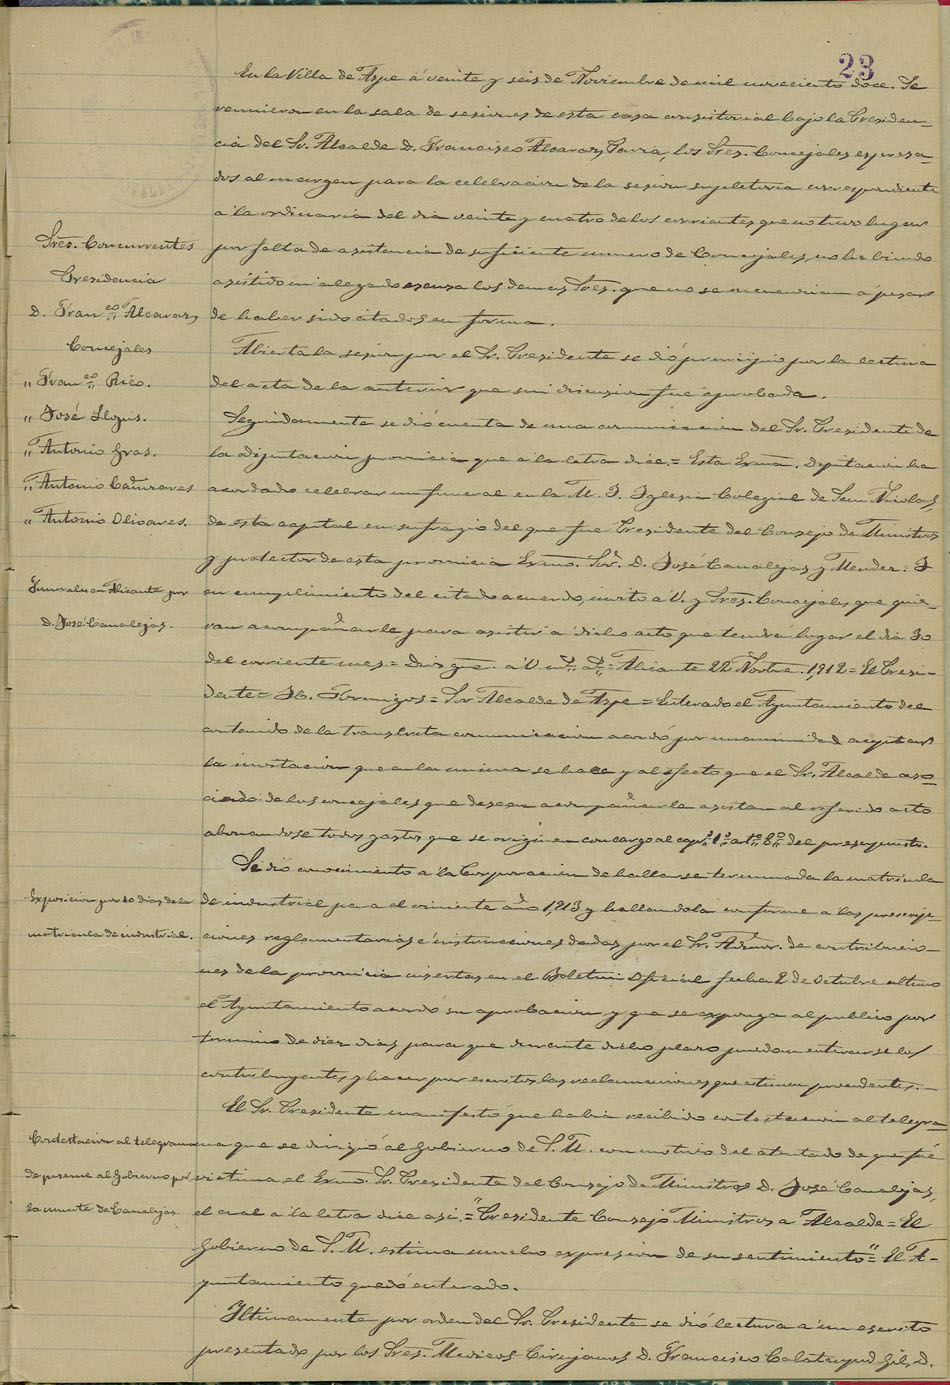 23
En la Villa de Aspe á veinte y seis de Noviembre de mil novecientos doce. Se
reunieron en la sala de sesiones de esta casa consistorial bajo la Presiden-
cia del Sr. Alcalde D. Francisco Alcaraz, los Sres. Concejales expresa-
dos al margen para la celebracion de la sesion supletoria correspondiente
á la ordinaria del dia veinte y cuatro de los corrientes, que no tuvo lugar
por falta de asistencia de suficiente numero de Concejales, no habiendo
asistido ni alegado escusa los demas Sres. que no se mencionan á pesar
de haber sido citados en forma.
Sres. Concurrentes
Presidencia
D. Franco Alcaraz
Concejales
" Franco Rico.
" José
" Antonio Gras.
" Antonio Cañizares
" Antonio Olivares.
Abierta la sesion por el Sr. Presidente se dió principio por la lectura
del acta de la anterior que sin discusion fué aprobada.
Funerales en Alicante por
D. José Canalejas.
Seguidamente se dió cuenta de una comunicacion del Sr. Presidente de
la diputacion provincial que á la letra dice.= Esta Exma. Diputacion ha
acordado celebrar un funeral en la M. I. Iglesia Colegial de San Nicolas,
de esta capital en sufragio del que fue Presidente del Consejo de Ministros
y protector de esta provincia Exmo. Sor. D. José Canalejas y Mendez. I
en cumplimiento del citado acuerdo, invito á V. y Sres. Concejales, que quie-
ran acompañarle para asistir á dicho acto que tendrá lugar el dia 30
del corriente mes.= Dios gue. á V. ms. as.= Alicante 22 Novbre. 1,912= El Presi-
dente= = Sor Alcalde de Aspe = Enterado el Ayuntamiento del
contenido de la transcrita comunicacion acordó por unanimidad aceptar
la invitacion que en la misma se hace y al efecto que el Sr. Alcalde aso-
ciado de los concejales que deseen acompañarle asistan al referido acto
abonandose todos gastos que se originen con cargo al capo. 1o arto. 8o del presupuesto.
Exposicion por 10 dias de la
matricula de industrial.
Se dió conocimiento á la Corporacion de hallarse terminada la matricula
de industrial para el viniente año 1,913 y hallandola conforme a las prescrip-
ciones reglamentarias é instrucciones dadas por el Sr. Admor. de contribucio-
nes de la provincia insertas en el Boletin Oficial fecha 2 de Octubre ultimo
el Ayuntamiento acordó su aprobacion y que se exponga al publico por
termino de diez dias para que durante dicho plazo puedan enterarse los
contribuyentes, y hacer por escrito las reclamaciones que estimen procedentes.
Contestacion al telegrama
de pesame al Gobierno por
la muerte de Canalejas
El Sr. Presidente manifestó que habia recibido contestacion al telegra-
ma que se dirigió al Gobierno de S. M. con motivo del atentado de que fué
victima el Exmo. Sr. Presidente del Consejo de Ministros D. José Canalejas,
el cual á la letra dice asi.= "Presidente Consejo Ministros a Alcalde= El
Gobierno de S. M. estima mucho expresion de su sentimiento"= El A-
yuntamiento quedó enterado.
Ultimamente por orden del Sr. Presidente se dió lectura á un escrito
presentado por los Sres. Medicos-Cirujanos D. Francisco Calatayud Gil, D.